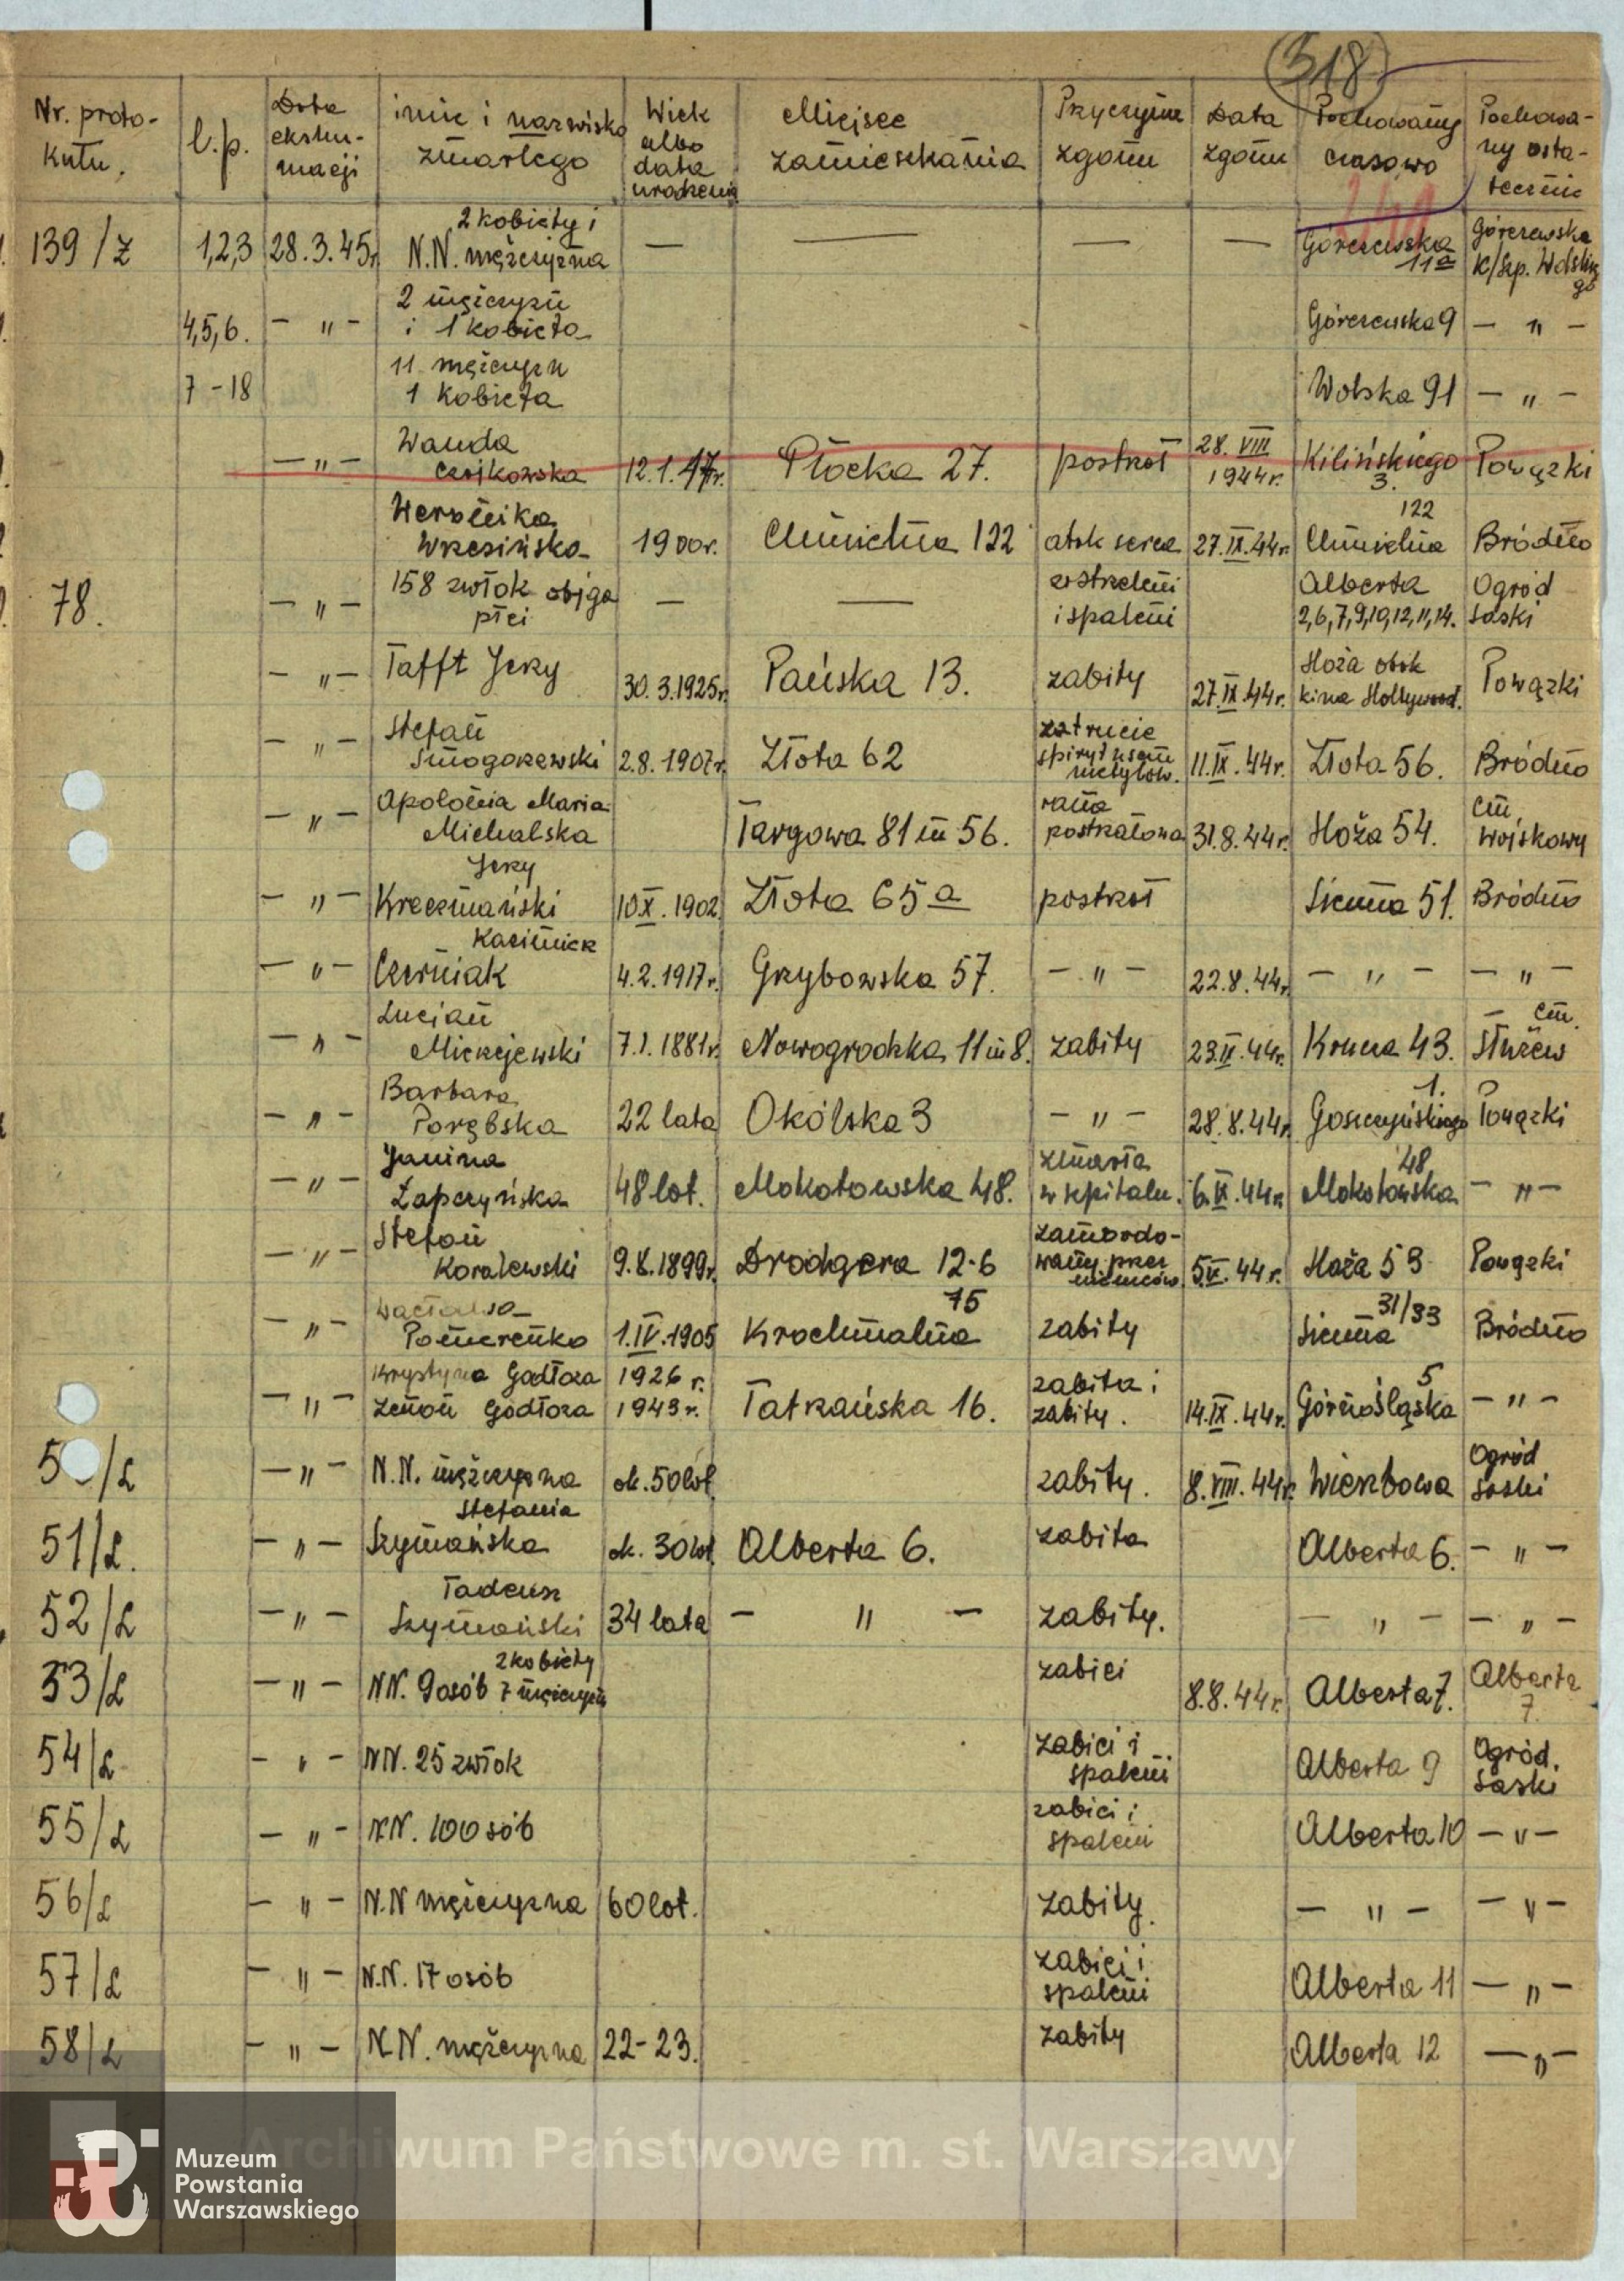 318
Nr. proto-kułu. l.p. Data ekshu-macji imię i nazwisko zmarłego Wiek albo data urodzenia Miejsce zamieszkania Przyczyna zgonu Data zgonu Pochowany czasowo Pochowa-ny osta-tecznie
139/z 1,2,3 28.3.45r. 2 kobiety i N.N. mężczyzna — — — — Górczewska 11a Górczewska k/Szp. Wolskiego
4,5,6. — " — 2 mężczyzn i 1 kobieta Górczewska 9 — " —
7 - 18 11 mężczyzn 1 kobieta Wolska 91 — " —
— " — Wanda Czajkowska 12.1.17r. Płocka 27. postrzał 28.VIII 1944r. Kilińskiego 3. Powązki
Weronika Wrzesińska 1900r. Chmielna 122 atak serca 27.IX.44r. Chmielna 122 Bródno
78. — " — 158 zwłok obojga płci — — zastrzeleni i spaleni Alberta 2,6,7,9,10,12,11,14. Ogród Saski
— " — Tafft Jerzy 30.3.1925r. Pańska 13. zabity 27.IX.44r. Hoża obok kina Hollywood. Powązki
— " — Stefan Smogorzewski 2.8.1907r. Złota 62 zatrucie spirytusem metylow. 11.IX.44r. Złota 56. Bródno
— " — Apolonia Maria Michalska Targowa 81 m 56. rana postrzałowa 31.8.44r. Hoża 54. cm. wojskowy
— " — Jerzy Kreczmański 10.X.1902 Złota 65a postrzał Sienna 51. Bródno
— " — Kazimierz Czerniak 4.2.1917r. Grzybowska 57. — " — 22.8.44r. — " — — " —
— " — Lucjan Mickiejewski 7.1.1881r. Nowogrodzka 11 m 8. zabity 23.IX.44r. Krucza 43. cm. Służew
— " — Barbara Porębska 22 lata Okólska 3 — " — 28.8.44r. Goszczyńskiego 1. Powązki
— " — Janina Łapczyńska 48 lat. Mokotowska 48. zmarła w szpitalu. 6.IX.44r. Mokotowska 48 — " —
— " — Stefan Koralewski 9.8.1899r. Drodgera 12-6 zamordo-wany przez niemców 5.IX.44r. Hoża 53 Powązki
— " — Wacława Pomerenko 1.IV.1905 Krochmalna 75 zabity Sienna 31/33 Bródno
— " — Krystyna Godłoza Zenon Godłoza 1926 r. 1943 r. Tatrzańska 16. zabita i zabity. 14.IX.44r. Górnośląska 5 — " —
5 /L — " — N.N. mężczyzna ok. 50 lat zabity. 8.VIII.44r. Wierzbowa Ogród Saski
51/L. — " — Stefania Szymańska ok. 30 lat. Alberta 6. zabita Alberta 6. — " —
52/L — " — Tadeusz Szymański 34 lata — " — zabity. — " — — " —
53/L — " — NN. 9 osób 2 kobiety 7 mężczyzn zabici 8.8.44r. Alberta 7. Alberta 7.
54/L — " — NN. 25 zwłok zabici i spaleni Alberta 9 Ogród. Saski
55/L — " — NN. 100 osób zabici i spaleni Alberta 10 — " —
56/L — " — N.N mężczyzna 60 lat. zabity. — " — — " —
57/L — " — N.N. 17 osób zabici i spaleni Alberta 11 — " —
58/L — " — N.N. mężczyzna 22-23. zabity Alberta 12 — " —
Archiwum Państwowe m. st. Warszawy
Muzeum
Powstania
Warszawskiego